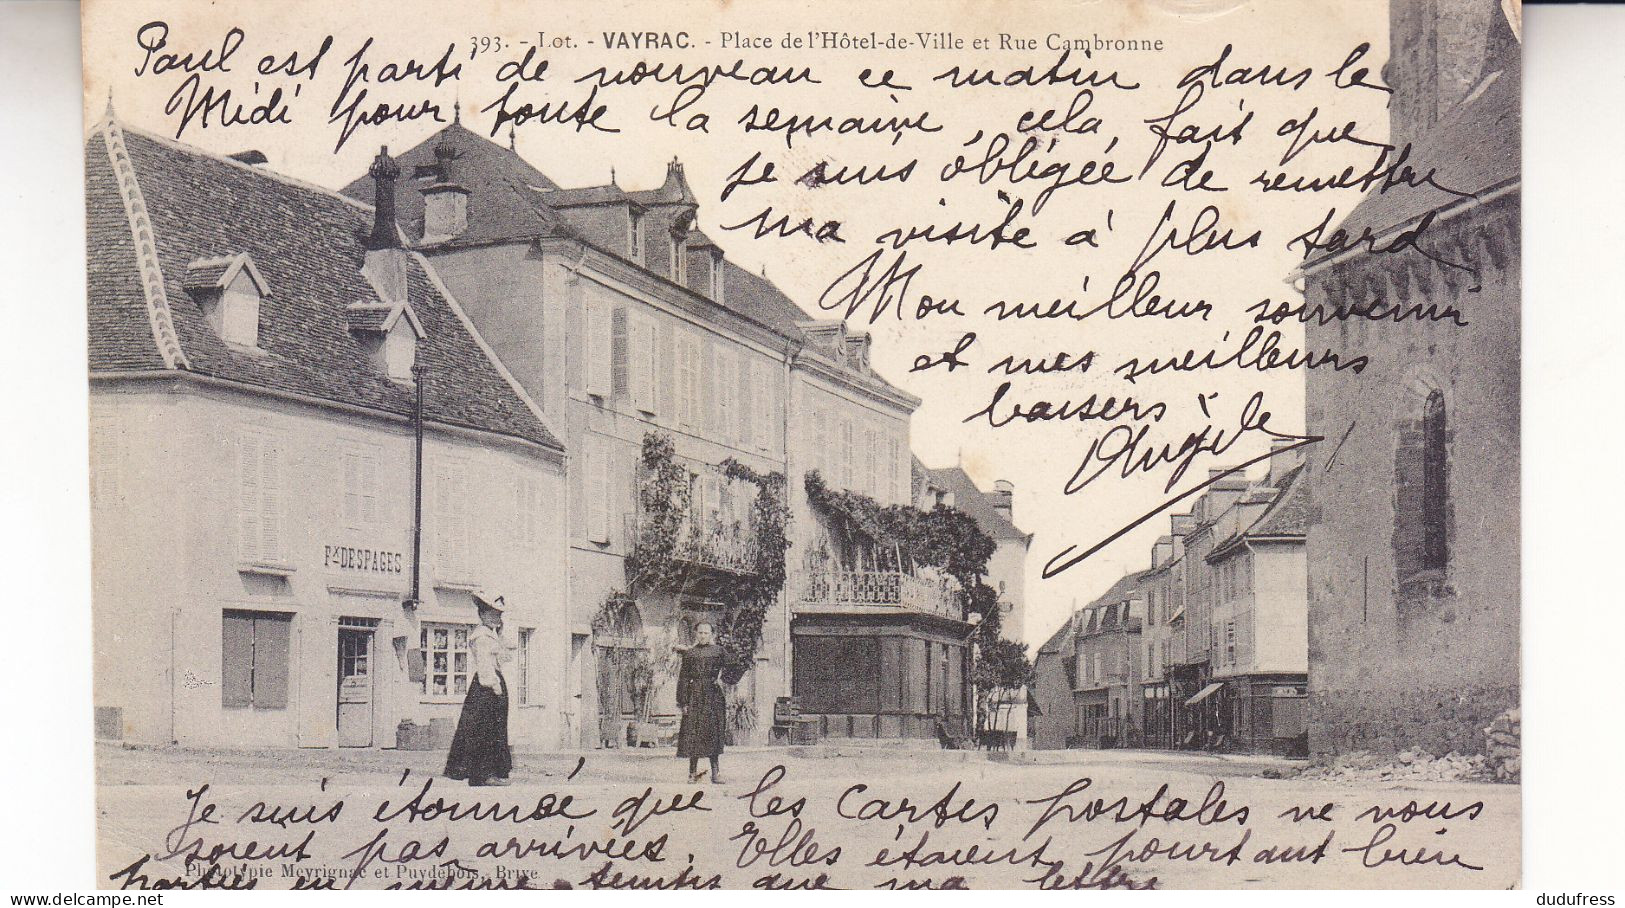 393. - Lot. - VAYRAC. - Place de l'Hôtel-de-Ville et Rue Cambronne
Paul est parti de nouveau ce matin dans le
Midi pour toute la semaine, cela, fait que
je suis obligée de remettre
ma visite à plus tard
Mon meilleur souvenir
et mes meilleurs
baisers
Angèle
Fx DESPAGES
Je suis étonnée que les cartes postales ne vous
soient pas arrivées. Elles étaient pourtant bien
Phototypie Meyrignac et Puydebois, Brive
parties en même temps que ma lettre
dudufress